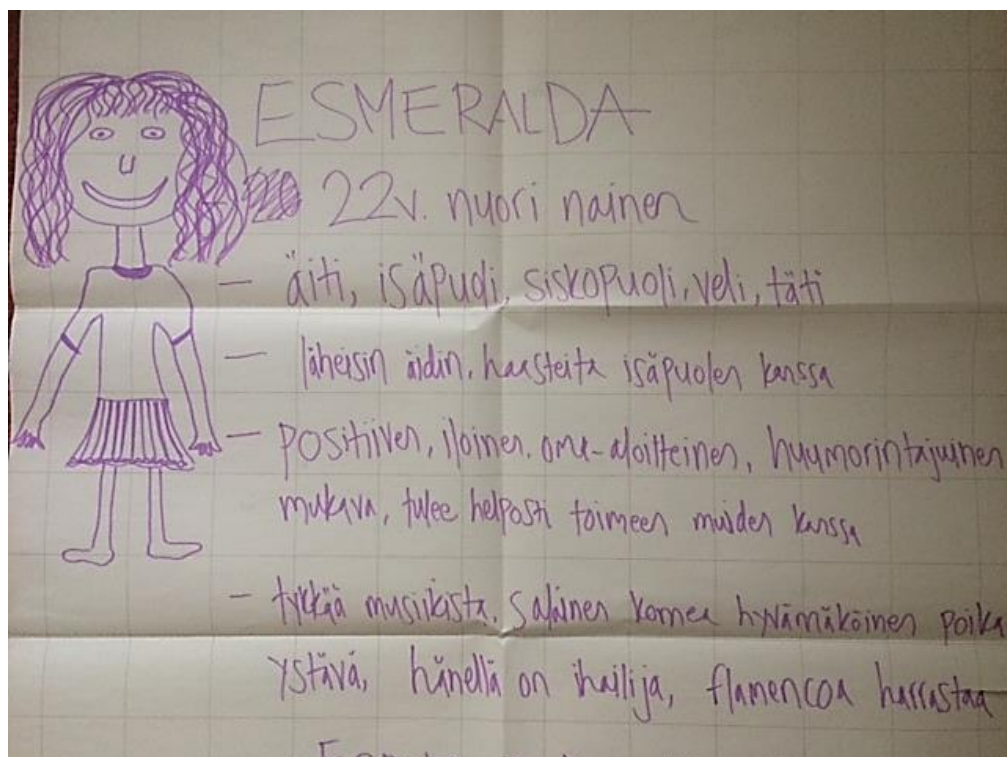 ESMERALDA
22v. nuori nainen
— äiti, isäpuoli, siskopuoli, veli, täti
— läheisin äidin, haasteita isäpuolen kanssa
— positiiven, iloinen, oma-aloitteinen, huumorintajuinen
mukava, tulee helposti toimeen muiden kanssa
— tykkää musiikista, salainen komea hyvämäköinen poika
ystävä, hänellä on ihailija, flamencoa harrastaa